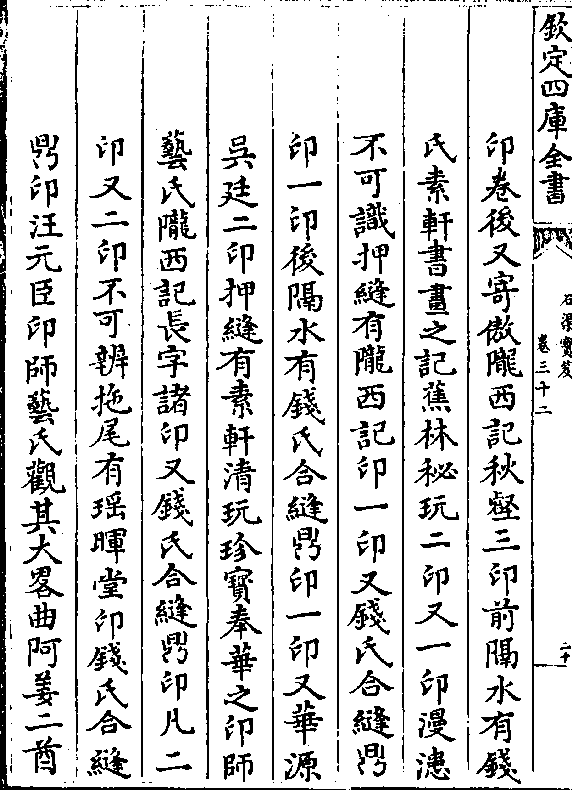 欽定四庫全書
石渠寶笈
卷三十二
二十
印卷後又寄傲隴西記秋壑三印前隔水有錢
氏素軒書畫之記蕉林秘玩二印又一印漫漶
不可識押縫有隴西記印一印又錢氏合縫鹍
印一印後隔水有錢氏合縫鹍印一印又華源
吳廷二印押縫有素軒清玩珍寶奉華之印師
藝氏隴西記長字諸印又錢氏合縫鹍印凡二
印又二印不可辨拖尾有瑶暉堂印錢氏合縫
鹍印汪元臣印師藝氏觀其大畧曲阿姜二酉